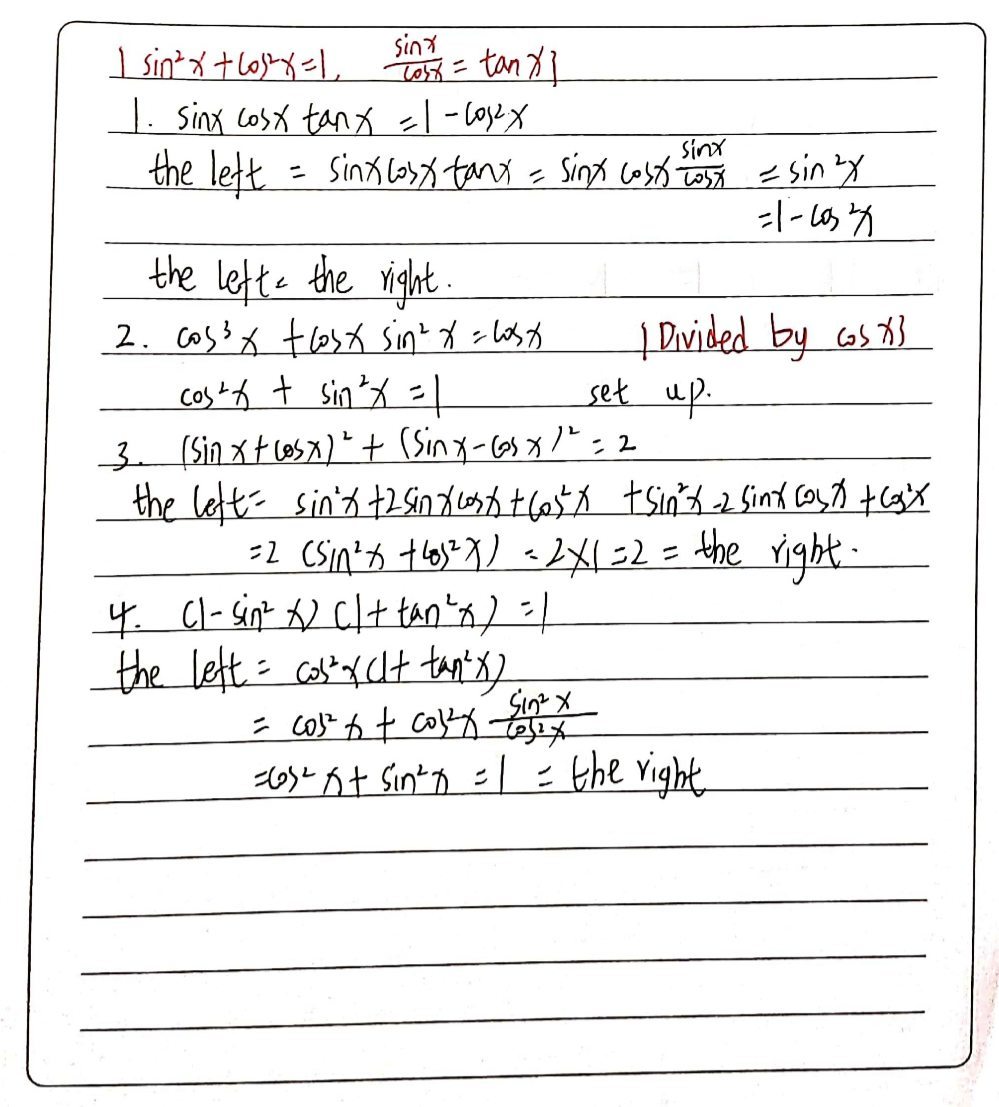 { sin²x + cos²x = 1, sinx/cosx = tan x }
1. sinx cosx tanx = 1 - cos²x
the left = sinx cosx tanx = sinx cosx sinx/cosx = sin²x
= 1 - cos²x
the left = the right.
2. cos³x + cosx sin²x = cosx { Divided by cosx }
cos²x + sin²x = 1 set up.
3. (sinx + cosx)² + (sinx - cosx)² = 2
the left = sin²x + 2sinxcosx + cos²x + sin²x - 2sinx cosx + cos²x
= 2 (sin²x + cos²x) = 2×1 = 2 = the right.
4. (1 - sin²x) (1 + tan²x) = 1
the left = cos²x (1 + tan²x)
= cos²x + cos²x sin²x/cos²x
= cos²x + sin²x = 1 = the right